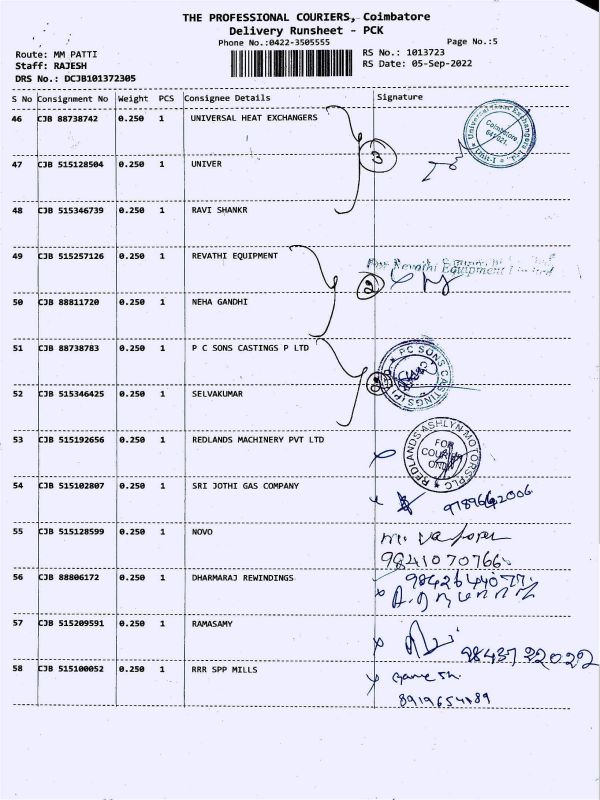 THE PROFESSIONAL COURIERS, Coimbatore
Delivery Runsheet - PCK
Phone No.:0422-3505555 Page No.:5
Route: MM PATTI RS No.: 1013723
Staff: RAJESH RS Date: 05-Sep-2022
DRS No.: DCJB101372305
S No Consignment No Weight PCS Consignee Details Signature
46 CJB 88738742 0.250 1 UNIVERSAL HEAT EXCHANGERS
Universal Heat Exchangers Ltd. Unit-I
Coimbatore
641021.
3
47 CJB 515128504 0.250 1 UNIVER
48 CJB 515346739 0.250 1 RAVI SHANKR
49 CJB 515257126 0.250 1 REVATHI EQUIPMENT
For Revathi Equipment Limited
2
50 CJB 88811720 0.250 1 NEHA GANDHI
51 CJB 88738783 0.250 1 P C SONS CASTINGS P LTD
PC SONS CASTINGS (P)
52 CJB 515346425 0.250 1 SELVAKUMAR
53 CJB 515192656 0.250 1 REDLANDS MACHINERY PVT LTD
REDLANDS ASHLYN MOTORS PLC
FOR
COURIER
ONLY
54 CJB 515102807 0.250 1 SRI JOTHI GAS COMPANY
55 CJB 515128599 0.250 1 NOVO
9841070766
56 CJB 88806172 0.250 1 DHARMARAJ REWINDINGS
9842644077
57 CJB 515209591 0.250 1 RAMASAMY
9843722022
58 CJB 515100052 0.250 1 RRR SPP MILLS
Ganesh
8919654189